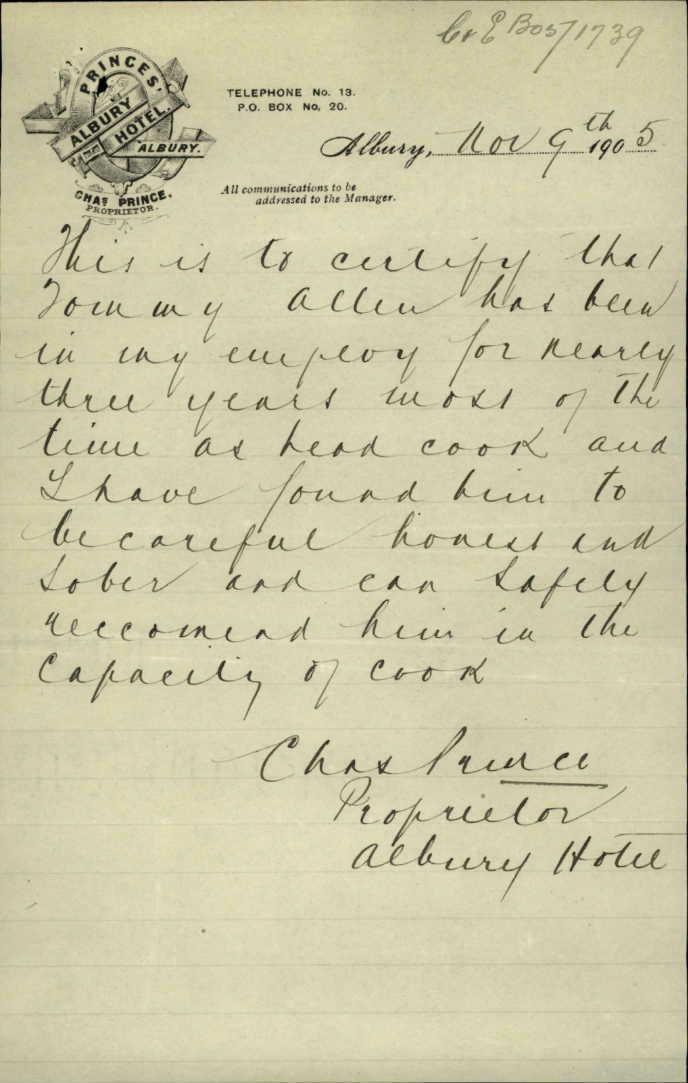 Cr E B05/1739
PRINCES'
ALBURY
HOTEL.
ALBURY.
CHAS PRINCE.
PROPRIETOR.
TELEPHONE No. 13.
P.O. BOX No, 20.
Albury, Nov 9th 1905
All communications to be
addressed to the Manager.
This is to certify that
Tommy Allen has been
in my employ for nearly
three years most of the
time as head cook and
I have found him to
be careful honest and
sober and can safely
reccomend him in the
capacity of cook
Chas Prince
Proprietor
Albury Hotel